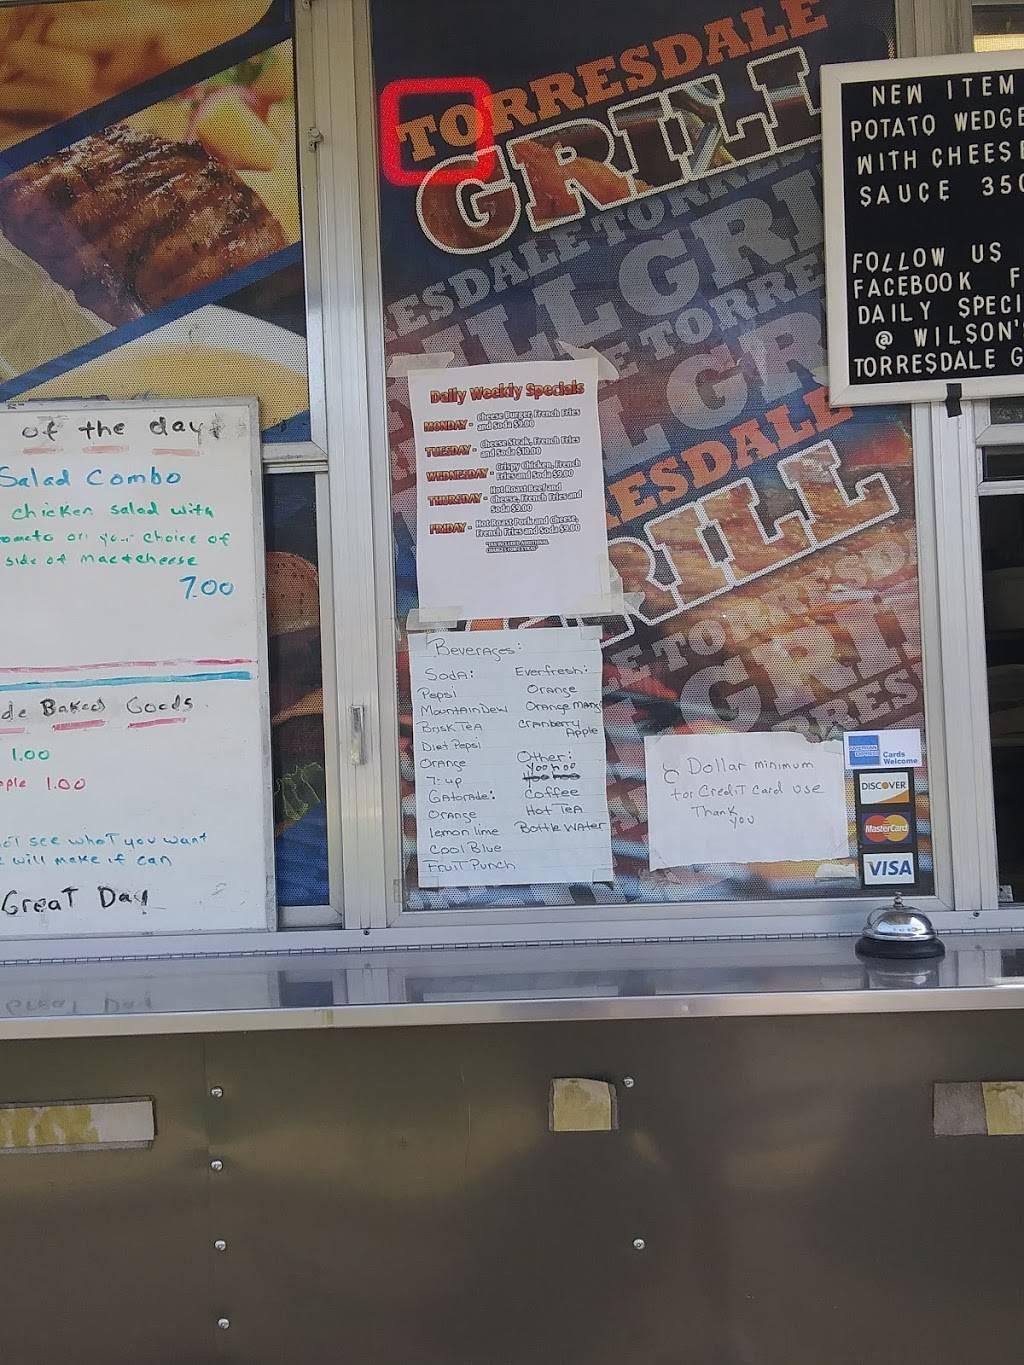 TORRESDALE
GRILL
NEW ITEM
POTATO WEDGE
WITH CHEESE
SAUCE 350
FOLLOW US
FACEBOOK F
DAILY SPECI
@ WILSON'
TORRESDALE G
of the day
Salad Combo
chicken salad with
omato on your choice of
side of mac+cheese
7.00
de Baked Goods
1.00
ple 1.00
see whaT you want
will make if can
Great Day
Daily Weekly Specials
MONDAY - Cheese Burger, French Fries
and Soda $9.00
TUESDAY - Cheese Steak, French Fries
and Soda $10.00
WEDNESDAY - Crispy Chicken, French
Fries and Soda $9.00
THURSDAY - Hot Roast Beef and
Cheese, French Fries and
Soda $9.00
FRIDAY - Hot Roast Pork and Cheese,
French Fries and Soda $9.00
*TAX INCLUDED ADDITIONAL
CHARGES FOR EXTRAS*
Beverages:
Soda:
Pepsi
Mountain Dew
Brisk Tea
Diet Pepsi
Orange
7:up
Gatorade:
Orange
lemon lime
Cool Blue
Fruit Punch
Everfresh:
Orange
Orange Mang
Cranberry
Apple
Other:
Yoo hoo
Yoo hoo
Coffee
Hot Tea
Bottle Water
Dollar minimum
for Credit Card use
Thank
you
AMERICAN EXPRESS
Cards
Welcome
DISCOVER
MasterCard
VISA
ESDALE TORRE
GRI
TORRE
GRI
RESDALE
RILL
E TO RRESD
GRILL